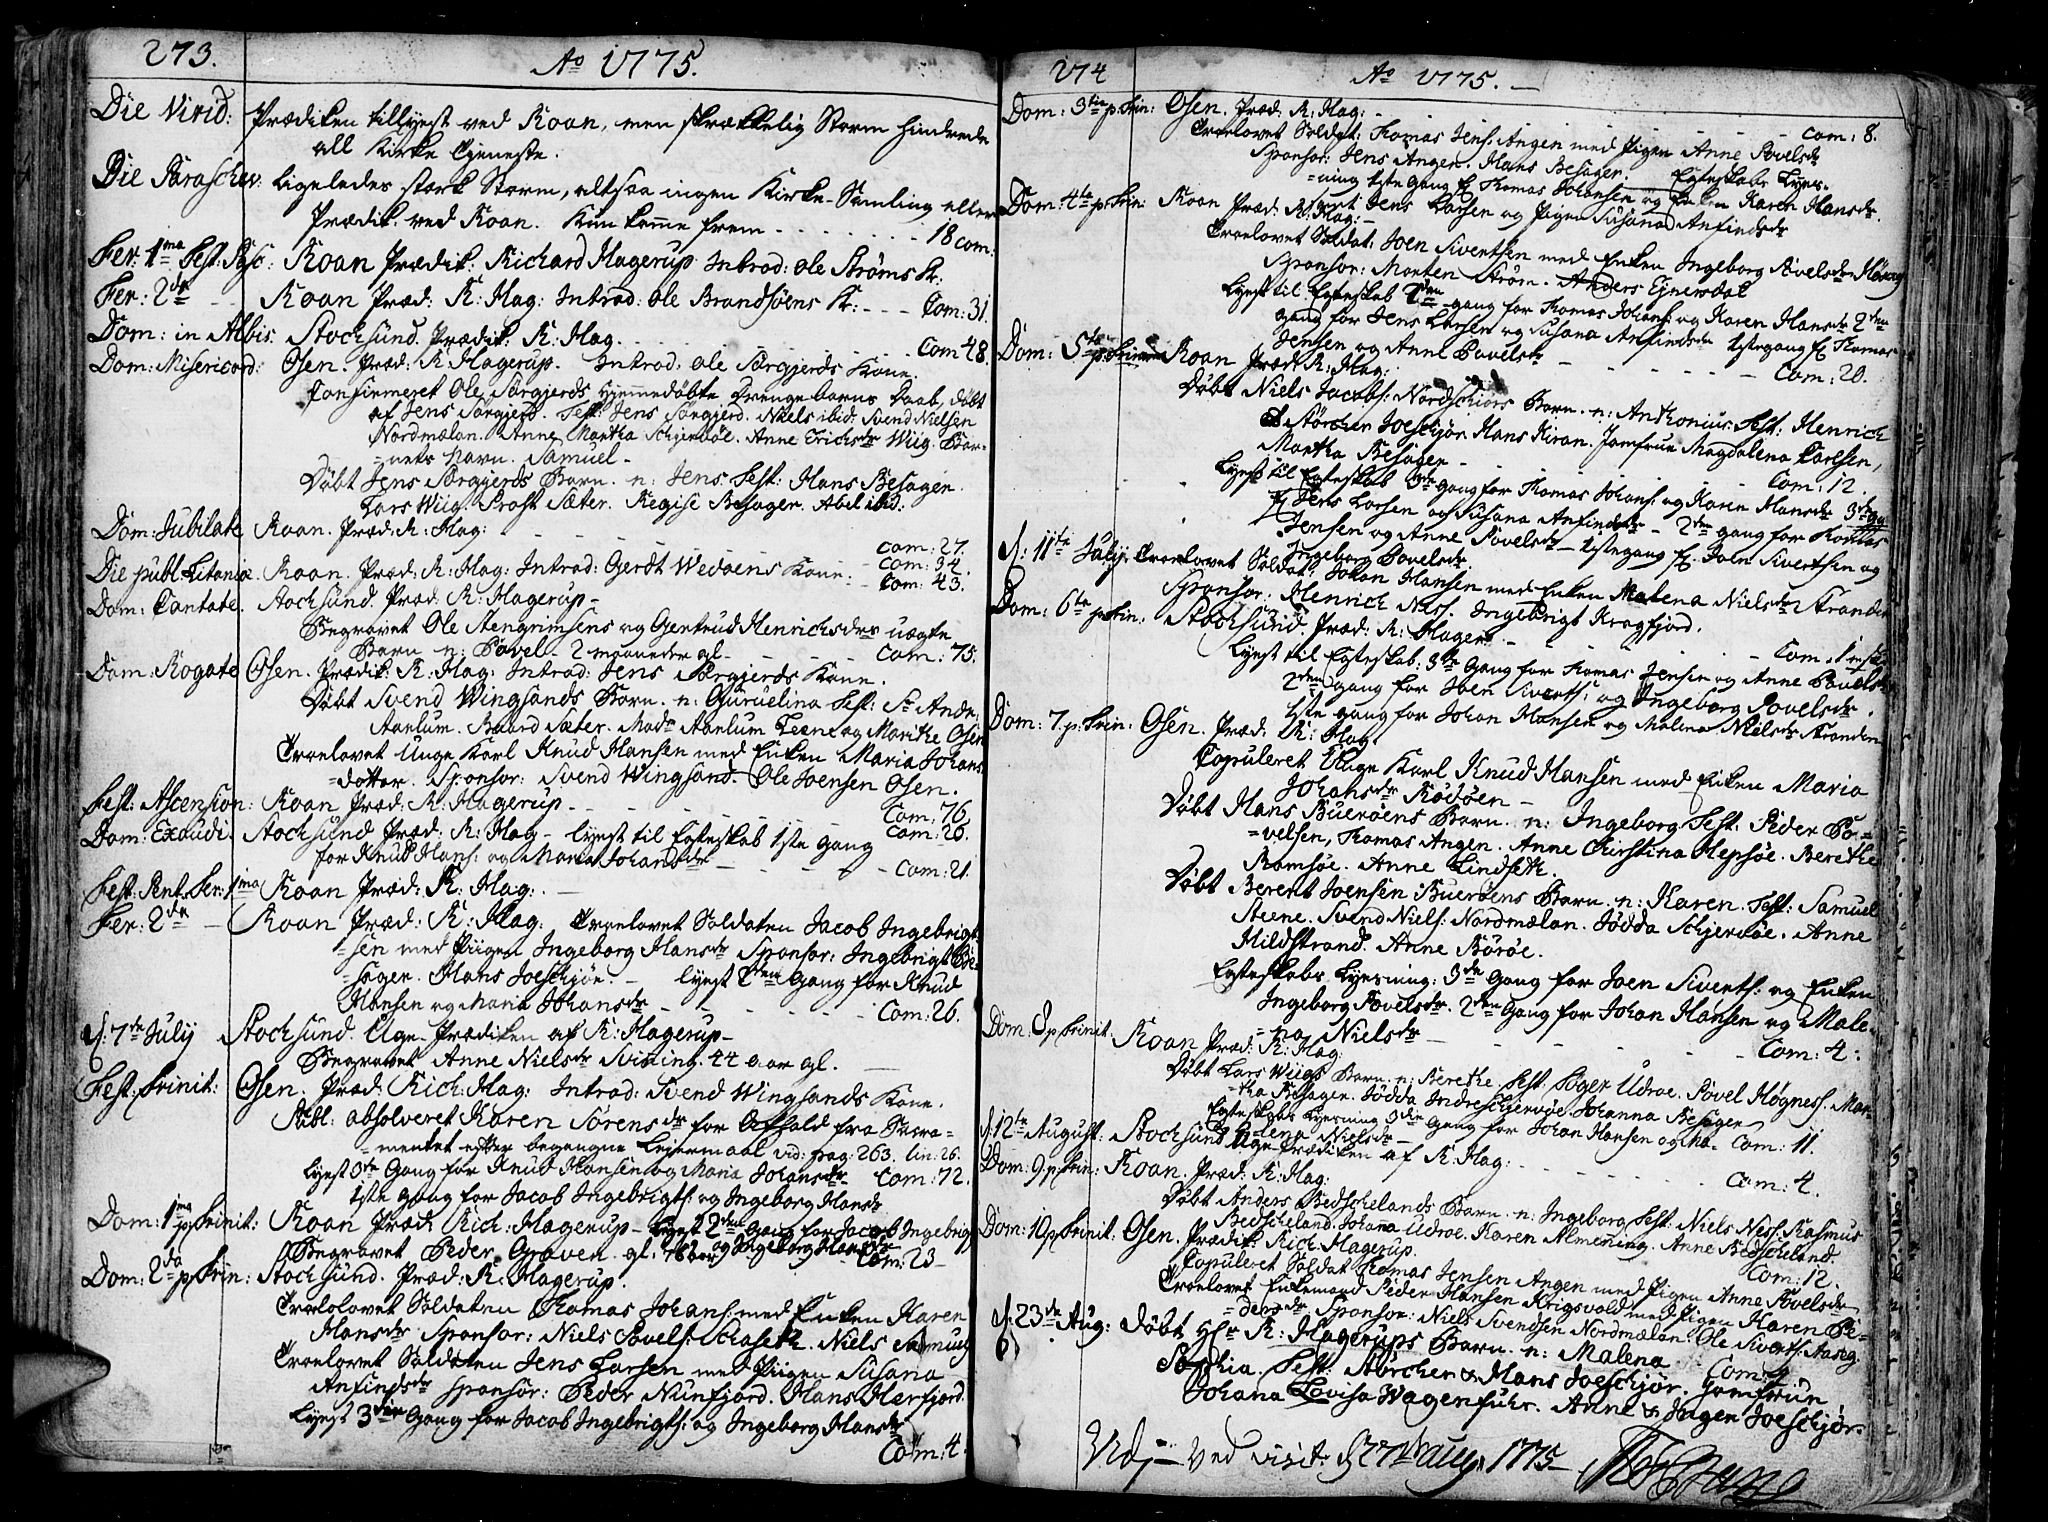 273.
Ao 1775.
Die Virid: Prædiken tillyest ved Roan, men skrækkelig Storm hindrede
all Kirke Tjeneste.
Die Parascher: Ligeledes stark Storm, altsaa ingen Kirke-Samling eller
Prædik: ved Roan. Kun komme frem - - - 18 com.
Fer: 1ma Fest: Pasc: Roan Prædik: Richard Hagerup. Introd: Ole Strøms K:
Fer: 2da - - Roan Præd: R: Hag: Introd: Ole Brandsøens K: - - - Com: 31.
Dom: in Albis. Stocksund. Prædik: R: Hag. - - - Com 48.
Dom: Misericord: Osen. Præd: R: Hagerup. Introd: Ole Sørgjerds Kone.
Confirmeret Ole Sørgjerds hjemmedøbte Drengebarns Daab, døbt
af Jens Sørgjerd. Test: Jens Sørgjerd. Niels ibid: Svend Nielsen
Nordmælan. Anne Martha Schjervøe. Anne Erichsdr Wiig. Bar-
=nets Navn. Samuel -
Døbt Jens Sørgjerds Barn. n: Jens Test: Hans Besagen.
Lars Wiig. Sæter. Regise Besager. Abel ibid:
Dom: Jubilate Roan. Præd: R: Hag: - - - Com: 27.
Die publ: Litaniæ. Roan. Præd: R: Hag: Introd: Gerdt Wedøens Kone. - Com: 34.
Dom: Cantate. Stocksund. Præd: R: Hagerup - Com: 43.
Begravet Ole Stengrimsens og Gertrud Henrichsdrs uægte
Barn n: Povel. 2 maaneder gl - - - Com: 75.
Dom: Rogate Osen. Prædik: R: Hag: Introd: Jens Sørgjerds Kone.
Døbt Svend Wingsands Barn. n: Guruelina Test: Sr Andr:
Aanlum. Baard Sæter. Madm Aanlum Leene og Marithe Osen
Troelovet Unge Karl Knud Hansen med Enken Maria Johans
=dotter. Sponsor: Svend Wingsand. Ole Joensen Osen.
Fest: Ascension: Roan Præd: R: Hagerup - - - Com: 76.
Dom: Exaudi. Stocksund Præd: R: Hag - lyest til Egteskab 1ste Gang Com: 26.
for Knud Hans: og Maria Johansdr - - - Com: 21.
Fest: Pent: Fer: 1ma Roan Præd: R: Hag: -
Fer: 2da - Roan Præd: R: Hag: Troelovet Soldaten Jacob Ingebrigt
=sen med Piigen Ingeborg Hansdr Sponsor: Ingebrigt Be=
=sager. Hans Joeschjøe. - lyest 2den Gang for Knud
Hansen og Maria Johansdr - - - Com: 26.
d: 7de July Stocksund. Uge-Prædiken af R: Hagerup -
Begravet Anne Nielsdr Svining. 44 aar gl.
Fest: Trinit: Osen. Præd: Rich: Hag: Introd: Svend Wingsands Kone.
Publ: absolveret Karen Sørensdr for Afhold fra Sacra=
=mentet efter begangne Lejermaal vid: pag: 263. lin: 26.
lyest 3de Gang for Knud Hansen og Maria Johansdr - Com: 72.
1ste Gang for Jacob Ingebrigts: og Ingeborg Hansdr
Dom: 1ma p: Trinit: Roan Præd: Rich: Hagerup - lyest 2den Gang for Jacob Ingebrigts
og Ingeborg Hansdr
Begravet Peder Graven. gl: 76 aar Com: 23 -
Dom: 2da p: Trin: Stocksund. Præd: R: Hagerup.
Trolovet Soldaten Thomas Johans: med Enken Karen
Hansdr Sponsor: Niels Povels: Niels
Troelovet Soldaten Jens Larsen med Piigen Susana
Anfindsdr Sponsor: Peder Nunfjord. Hans Herfjord.
lyest 3die Gang for Jacob Ingebrigts: og Ingeborg Hansdr
Com: 4.
274
Ao 1775. -
Dom: 3tia p: Trin: Osen. Præd: R: Hag: - - - Com: 8.
Troelovet Soldat: Thomas Jens: Angen med Pigen Anne Povelsdr
Sponsor: Jens Angen. Hans Besager. Egteskabs Lyes=
=ning 1ste Gang f: Thomas Johansen og Enken Karen Hansdr.
Dom: 4ta p: Trin: Roan Præd: R: Hag: - Jens Larsen og Pigen Susana Anfindsdr
Troelovet Soldat: Joen Sivertsen med Enken Ingeborg Povelsdr
Sponsor: Morten Strøm. Anders Ejnersdal
Lyest til Egteskab 2den gang for Thomas Johans: og Karen Hansdr 2den
gang for Jens Larsen og Susana Anfindsdr 1stegang f: Thomas
Jensen og Anne Povelsdr - - - Com: 20.
Dom: 5ta p: Trin: Roan Præd: R: Hag:
Døbt Niels Jacobs: Nordschiørs Barn. n: Anthonius. Test: Henrich
Størcher Joeschjør. Hans Kiran. Jomfrue Magdalena Carlsen,
Martha Besagen - - - Com: 12.
Lyest til Egteskab 3de gang for Thomas Johans: og Karen Hansdr 3de gg
f: Jens Larsen og Susana Anfindsdr - 2den gang for Thomas
Jensen og Anne Povelsdr - 1stegang f: Joen Sivertsen og
Ingeborg Povelsdr.
d: 11te July. Troelovet Soldat: Johan Hansen med Enken Malena Nielsdr Stranden
Sponsor: Henrich Ness. Ingebrigt Kragfjord.
Dom: 6ta p: Trin: Stocksund. Præd: R: Hager: - - - Com: 1
Lyest til Egteskab: 3die Gang for Thomas Jensen og Anne Povelsdr
2den gang for Joen Siverts: og Ingeborg Povelsdr.
1ste gang for Johan Hansen og Malena Nielsdr Stranden
Dom: 7. p: Trin: Osen. Præd: R: Hag:
Copuleret Unge Karl Knud Hansen med Enken Maria
Johansdr Rødøen -
Døbt Hans Buerøens Barn. n: Ingeborg Test: Peder Po=
=velsen, Thomas Angen. Anne Chirstina Hepsøe. Berethe
Ramsøe. Anne Lindseth.
Døbt Berent Joensen Buerøens Barn. n: Karen. Test: Samuel
Steene. Svend Niels: Nordmælan. Jødda Schjervøe. Anne
Hildstrand. Anne Børøe.
Egteskabs Lyesning: 3de Gang for Joen Siverts: og Enken
Ingeborg Povelsdr. 2den Gang for Johan Hansen og Male-
=na Nielsdr - - - Com: 4.
Dom: 8 p: Trinit: Roan Præd: R: Hag:
Døbt Lars Wiigs Barn. n: Berethe. Test: Roger Udroe. Povel Høgness. Mar-
=tha Besagen. Jødda Indreschjervøe. Johanna Besagen
Egteskabs Lyesning 3die Gang for Johan Hansen og Ma- Com: 11.
lena Nielsdr -
d: 12te August: Stocksund Uge Prædiken af R: Hag: - - -
Dom: 9 p: Trin: Roan. Præd: R: Hag: Com: 4.
Døbt Anders Bedschelands Barn. n: Ingeborg Test: Niels Ness. Rasmus
Bedscheland. Johana Udroe. Karen Almening. Anne Bedscheland.
Dom: 10 p: Trinit. Osen. Prædik: Rich: Hagerup. Com: 12.
Copuleret Soldat Thomas Jensen Angen med Pigen Anne Povelsdr
Troelovet Enkemand Peder Hansen Krigsvold med Pigen Karen Pe-
=dersdr Sponsor: Niels Svendsen Nordmælan. Ole Siverts: Aaseg.
d: 23de Aug: Døbt Hr R: Hagerups Barn n: Malena Com: 9.
Sophia. Test: Størcher & Hans Joeschjør. Jomfrun
Johana Lovisa Wagenfuhr. Anne & Inger Joeschjør.
Vidj - Ved visit: d 27de Aug: 1775 -